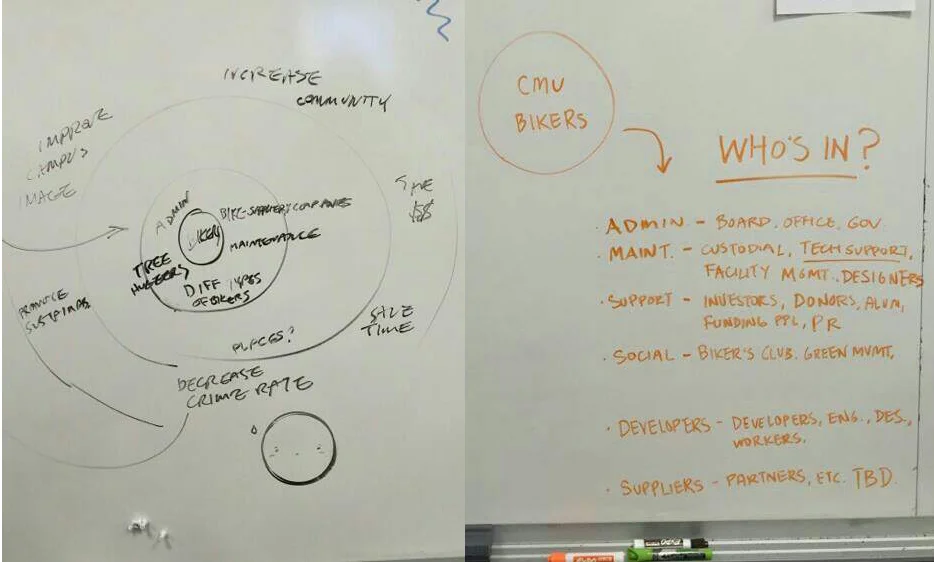 INCREASE
COMMUNITY
IMPROVE
CAMPUS
IMAGE
SAVE
$$
ADMIN
BIKE-SHARE/COMPANIES
BIKERS
MAINTENANCE
TREE
HUGGERS
DIFF TYPES
OF BIKERS
PROMOTE
SAVE
TIME
PLACES?
DECREASE
CRIME RATE
CMU
BIKERS
WHO'S IN?
· ADMIN - BOARD, OFFICE, GOV
· MAINT. - CUSTODIAL, TECH SUPPORT,
FACILITY MGMT. DESIGNERS
· SUPPORT - INVESTORS, DONORS, ALUM,
FUNDING PPL, PR
· SOCIAL - BIKER'S CLUB. GREEN MVMT,
· DEVELOPERS - DEVELOPERS, ENG., DES.,
WORKERS.
· SUPPLIERS - PARTNERS, ETC. TBD.